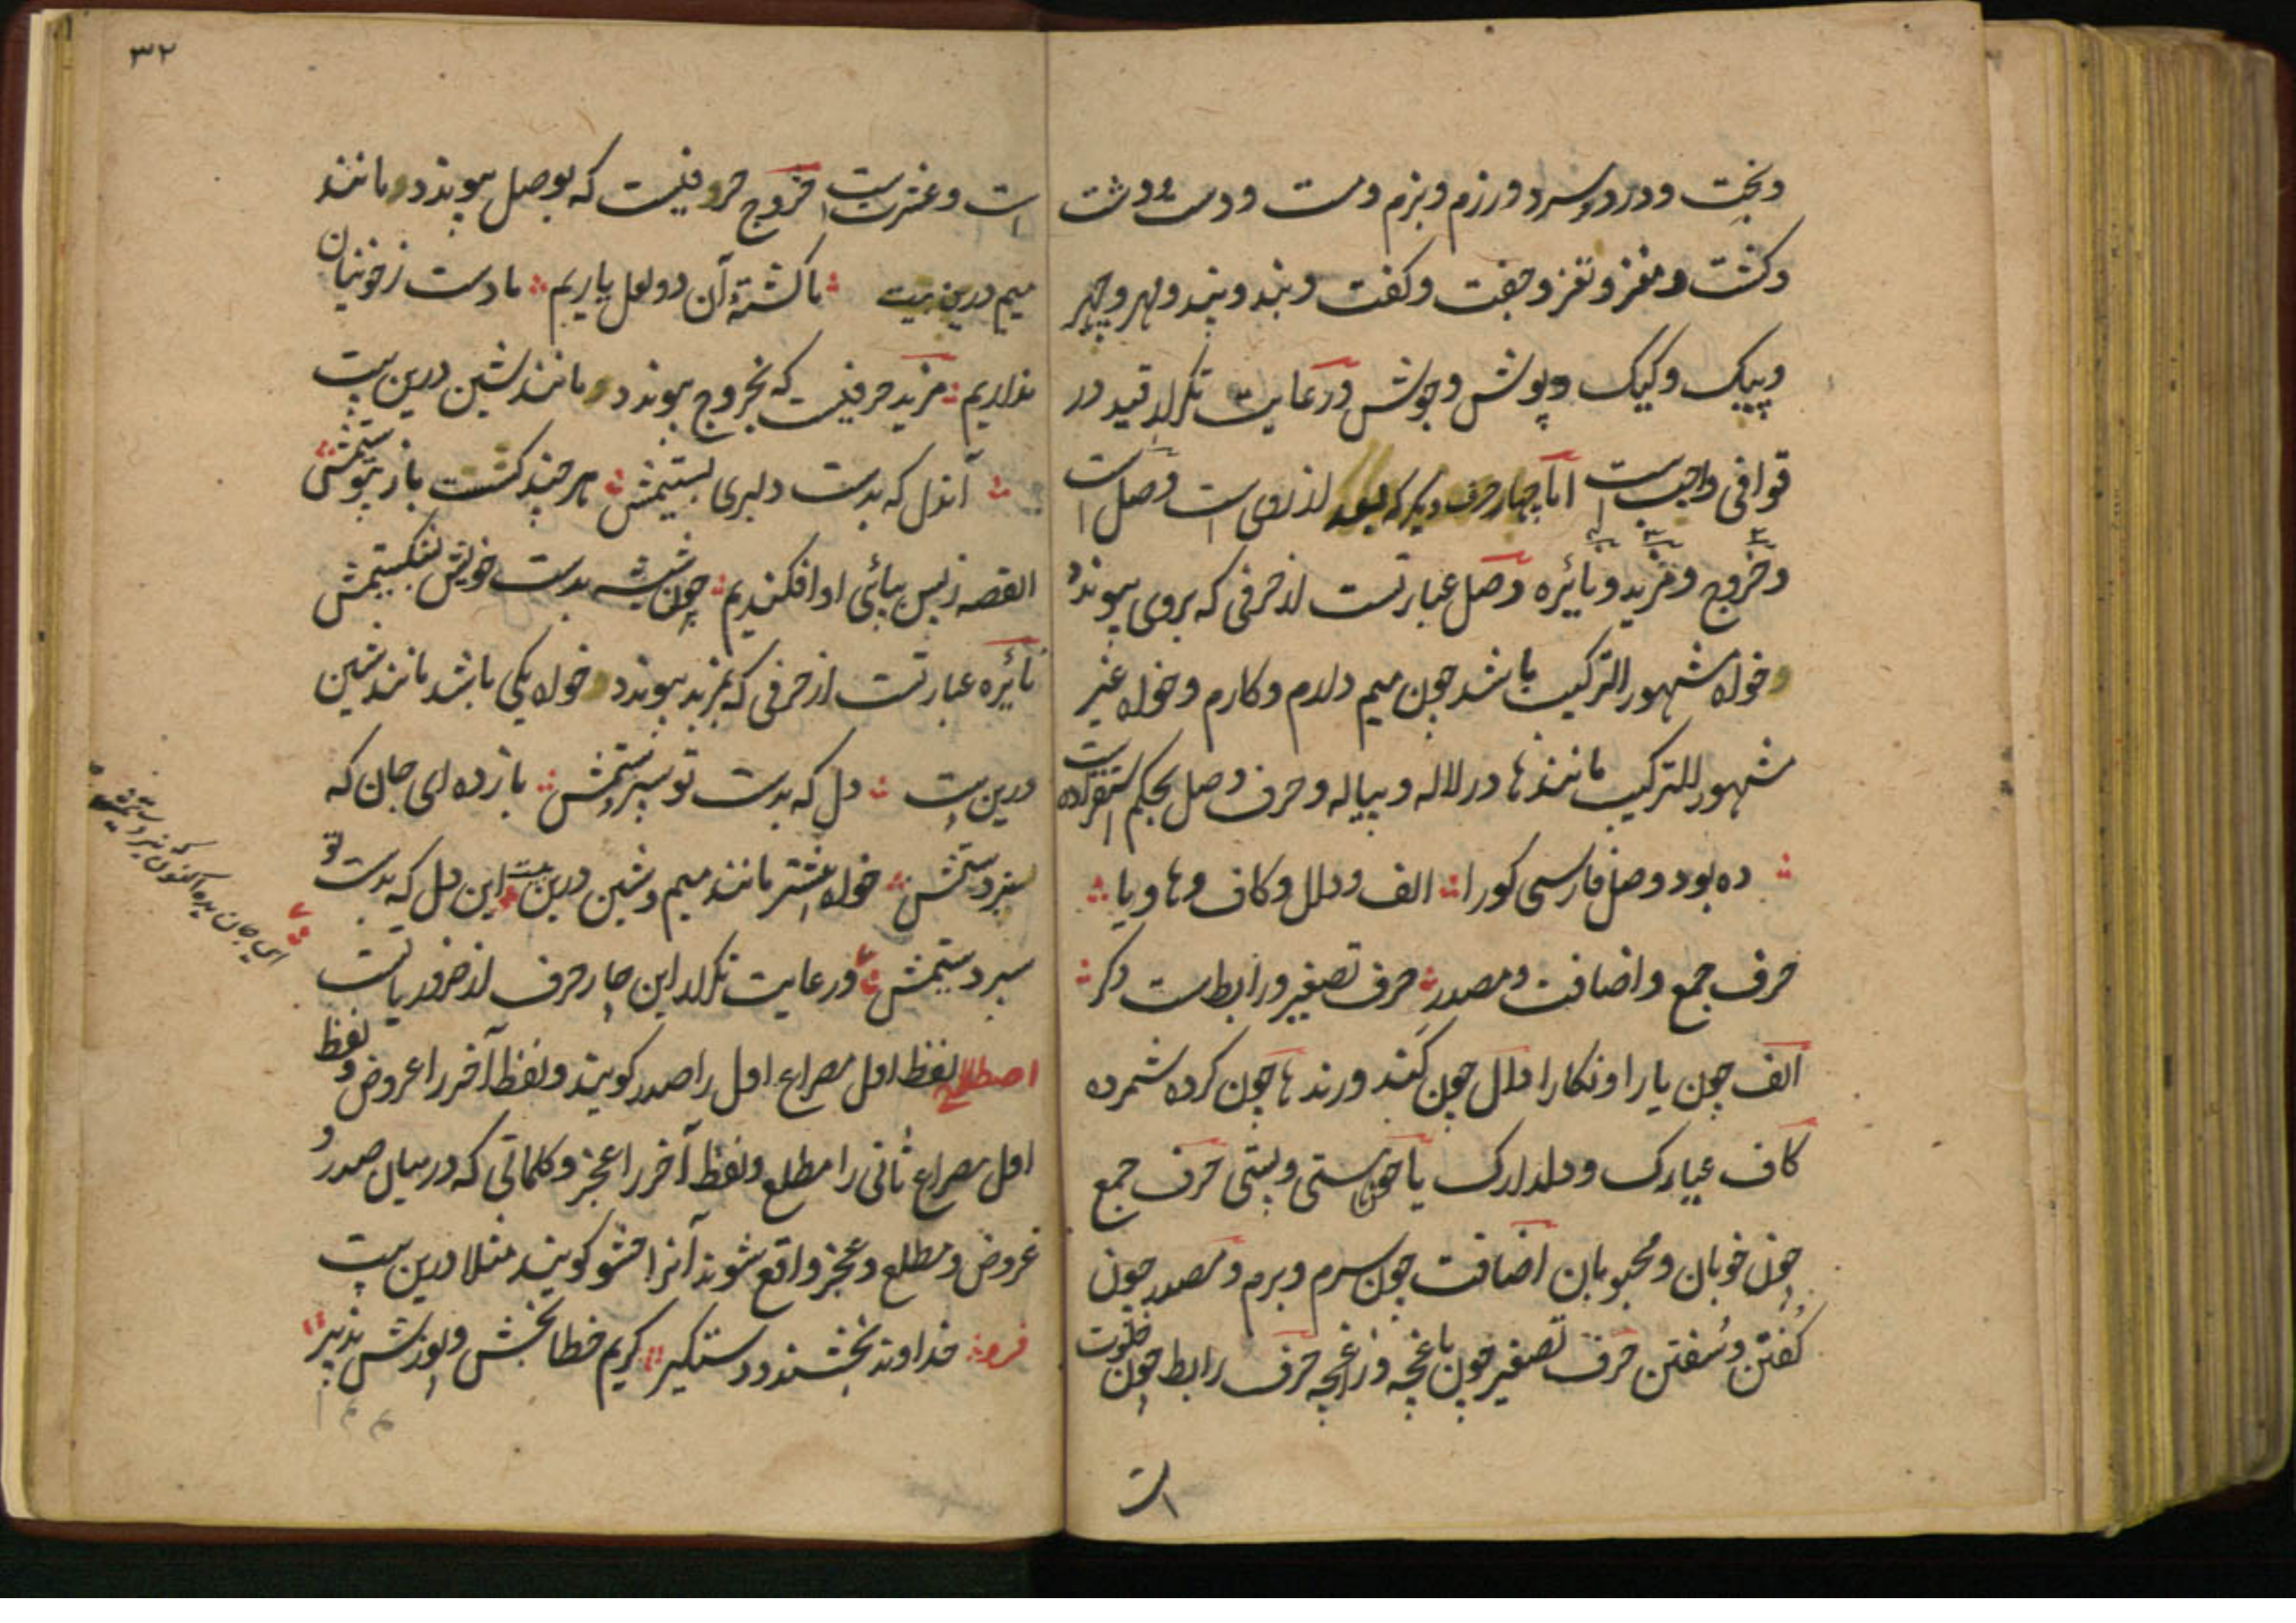 وبخت ودرد وسرد ورزم وبزم ومست ودست ودشت
وكشت ومغز ونغز وجفت وكفت وبند وپند ومهر وچهر
وپیک وکیک وپوشش وجوشش ورعایت تکرار قید در
قوافی واجب است اما چهار حرف دیگر که بعد از روی است وصل است
وخروج ومزید ونائره وصل عبارتست از حرفی که بروی پیوندد
وخواه مشهور الترکیب باشد چون میم دارم وکارم وخواه غیر
مشهور الترکیب مانند ها در لاله وپیاله وحرف وصل بحکم استقرا ده
ده بود وصل فارسی کورا الف ودال وکاف وها ویا
حرف جمع واضافت ومصدر حرف تصغیر ورابط است دکر
الف چون یارا ونکارا دال چون کند ورند ها چون کرده شمرده
کاف عیارک ودلدارک یا چون مستی وپستی حرف جمع
چون خوبان ومحبوبان اضافت چون سرم وبرم ومصدر چون
کفتن وسفتن حرف تصغیر چون باغچه وزاغچه حرف رابط چون خلوت
است
۳۲
است وعشرت است خروج حرفیست که بوصل پیوندد مانند
میم درین بیت ما کشتهٔ آن دو لعل یاریم ما دست زخونیان
نداریم مزید حرفیست که بخروج پیوندد مانند شین درین بیت
آندل که بدست دلبری بستیمش هر چند کشست باز پیوستیمش
القصه زبس بپائی او افکندیم چون شیشه بدست خویش بشکستیمش
نائره عبارتست از حرفی که بمزید پیوندد خواه یکی باشد مانند شین
درین بیت دل که بدست تو سپردستمش باز ده ای جان که
نبردستمش خواه بیشتر مانند میم وشین درین بیت این دل که بدست تو
سپردستیمش ورعایت تکرار این چار حرف از ضروریاتست
ای جان بده اکنون که نبردستیمش
اصطلاح لفظ اول مصراع اول را صدر کویند ولفظ آخر را عروض ولفظ
اول مصراع ثانی را مطلع ولفظ آخر را عجز وکلماتی که در میان صدر و
عروض ومطلع وعجز واقع شوند آنرا حشو کویند مثلا درین بیت
فرد خداوند بخشنده دستکیر کریم خطا بخش وپوزش پذیر